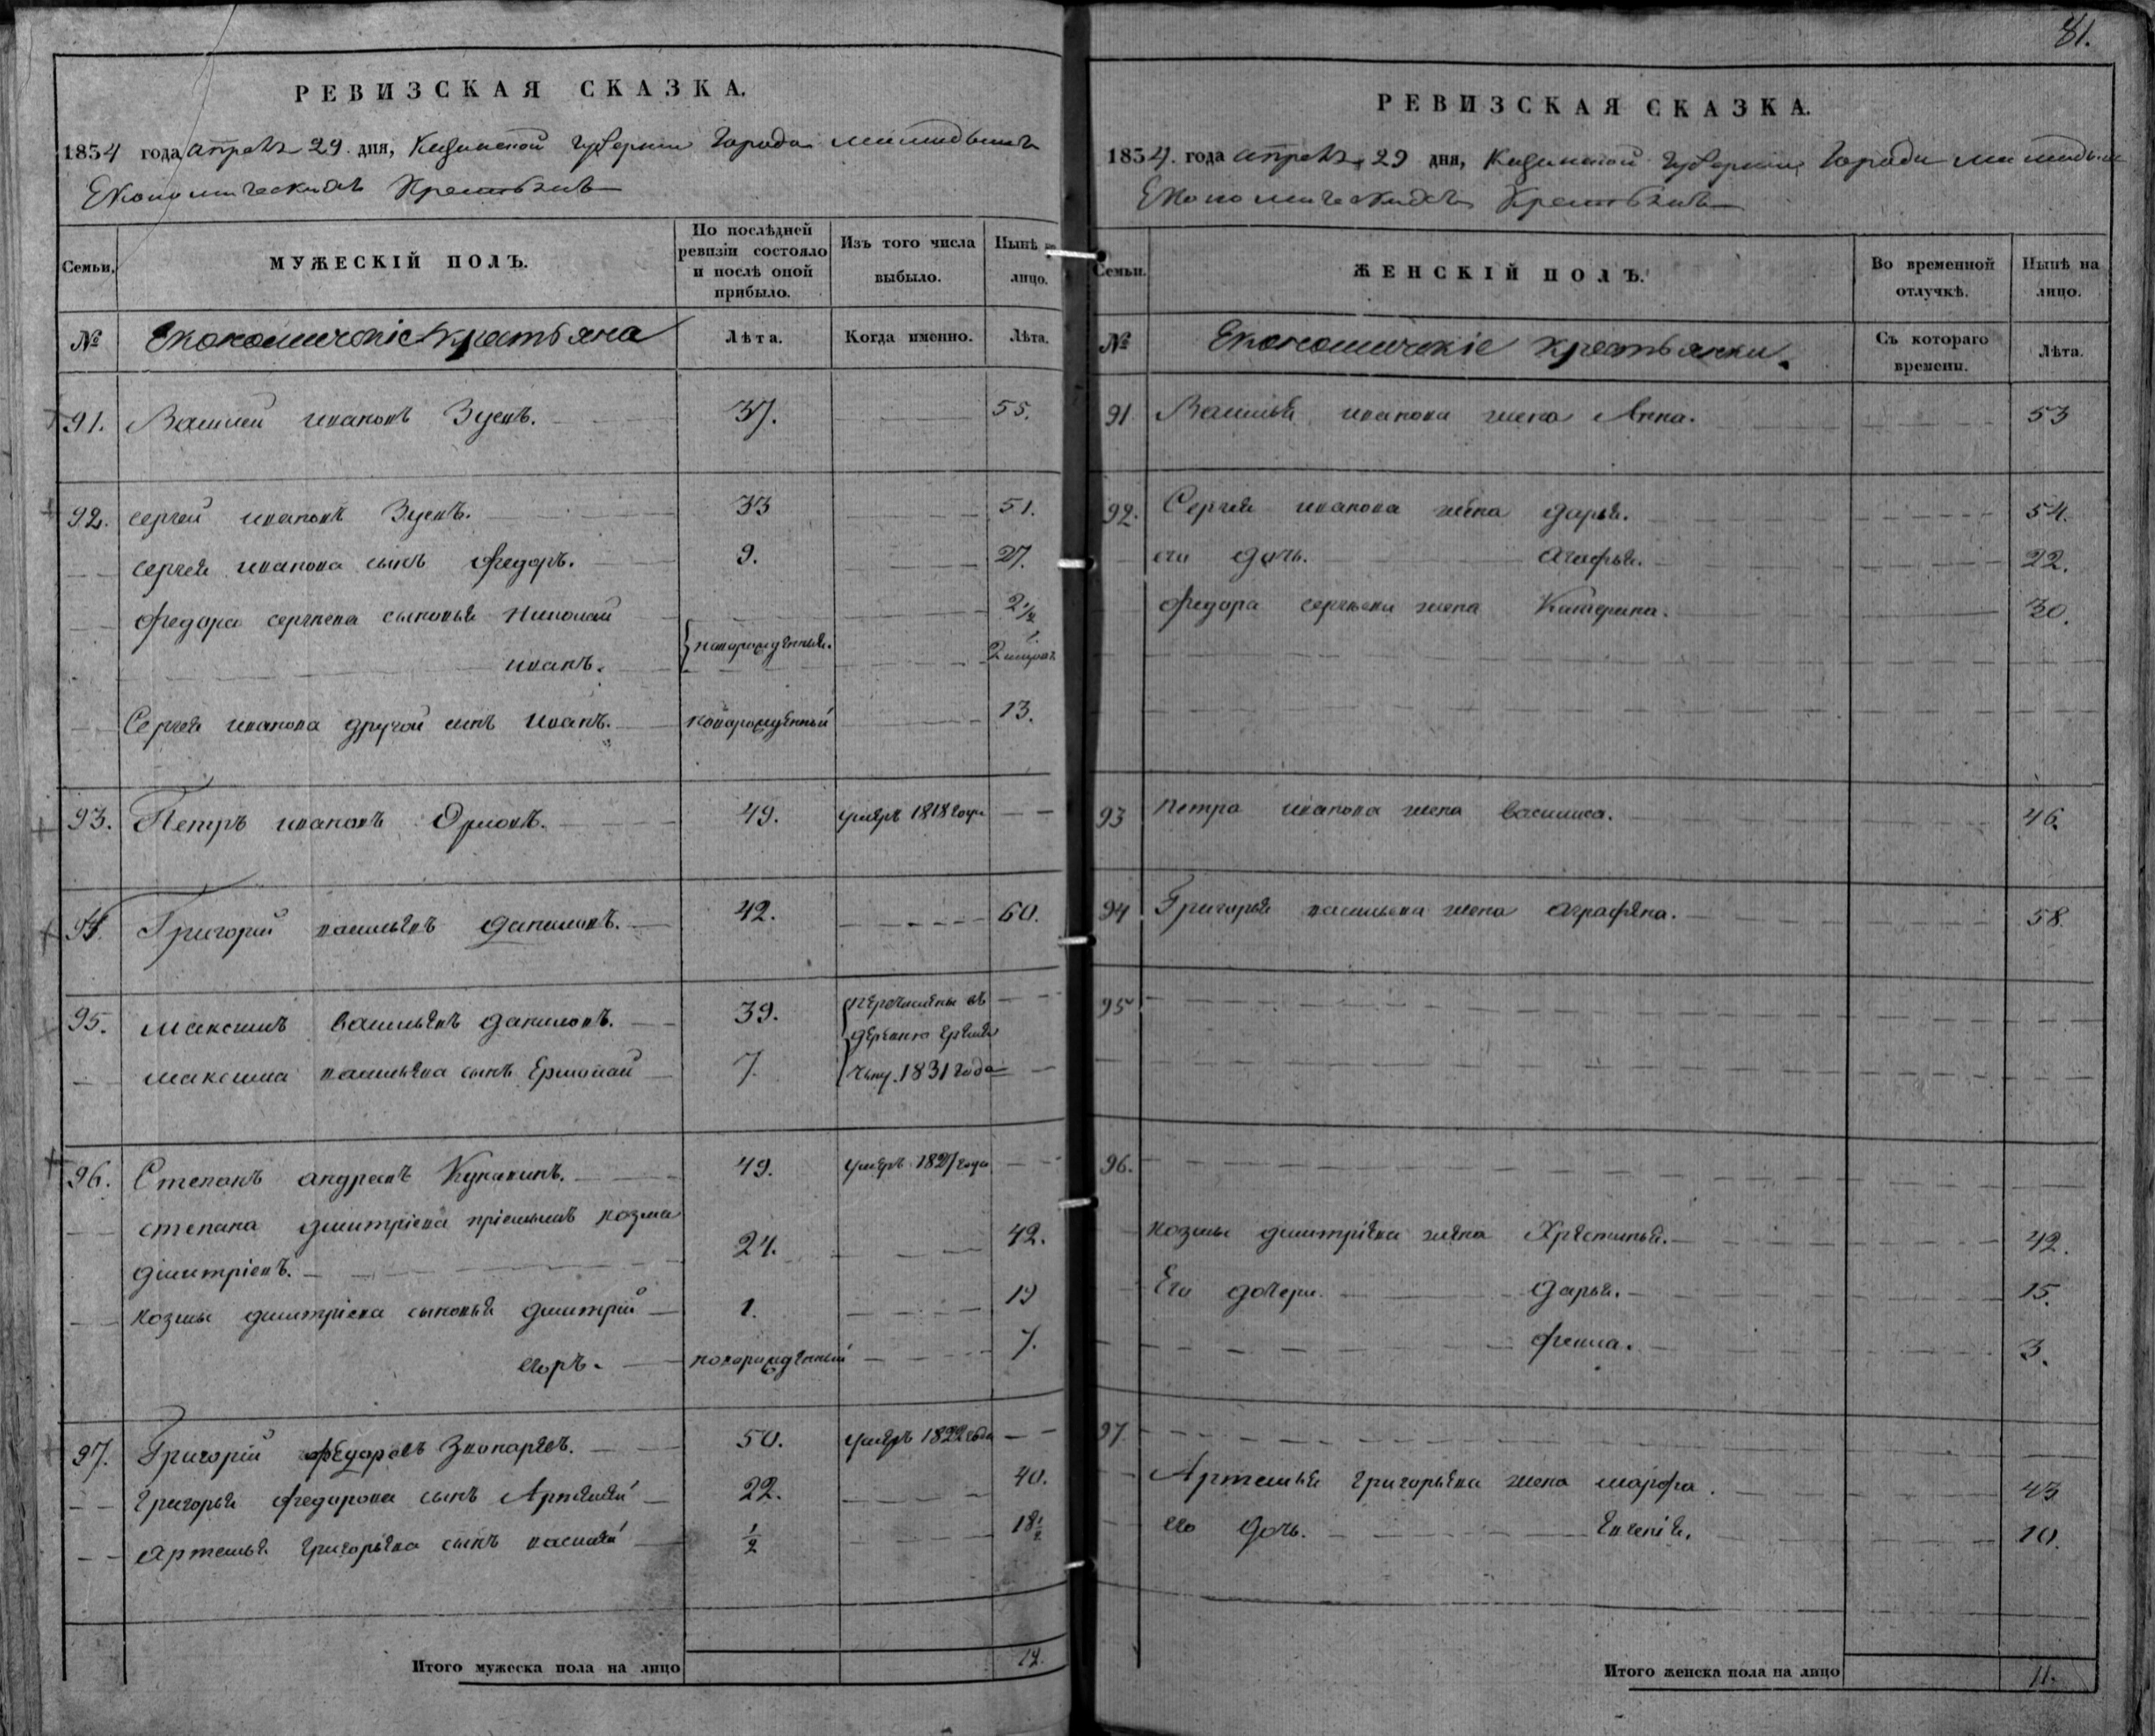 81.
РЕВИЗСКАЯ СКАЗКА.
1834 года апреля 29 дня, Казанской губернии города
Економическихъ Крестьянъ
Семьи.
МУЖЕСКІЙ ПОЛЪ.
По послѣдней ревизіи состояло и послѣ оной прибыло.
Изъ того числа выбыло.
Нынѣ на лицо.
№ Економическіе крестьяна Лѣта. Когда именно. Лѣта.
91. Василей ивановъ Зуевъ. 37. 55.
92. Сергей ивановъ Зуевъ. 33 51.
сергея иванова сынъ федоръ. 9. 27.
федора сергѣева сыновья николай 2 1/2
новорожденныя.
иванъ. 2
Сергея иванова другой сынъ иванъ. новорожденный 13.
93. Петръ ивановъ Орловъ. 49. умеръ 1818 года
94. Григорий васильевъ даниловъ. 42. 60.
95. максимъ васильевъ даниловъ. 39. перечислены въ
деревню
максима васильева сынъ Ермолай 7. 1831 года
96. Степанъ андреевъ Кунакинъ. 49. умеръ 1827 года
степана дмитріева пріемышъ козма
дмитріевъ. 24. 42.
козмы дмитріева сыновья дмитрій 1. 19
егоръ. новорожденный 7.
97. Григорий федоровъ 50. умеръ 1822 года
григорья федорова сынъ Артемей 22. 40.
артемья григорьева сынъ василей 1/2 18 1/2
Итого мужеска пола на лицо 12.
РЕВИЗСКАЯ СКАЗКА.
1834. года апреля 29 дня, Казанской губернии города
Економическихъ Крестьянъ
Семьи.
ЖЕНСКІЙ ПОЛЪ.
Во временной отлучкѣ.
Нынѣ на лицо.
№ Економическіе крестьянки. Съ котораго времени. Лѣта.
91 Василья иванова жена Анна. 53
92. Сергея иванова жена дарья. 54.
его дочь. агафья. 22.
федора сергѣева жена Катерина. 30.
93 петра иванова жена василиса. 46.
94 Григорья васильева жена аграфена. 58.
95
96.
козмы дмитріева жена Христинья. 42.
Его дочери дарья. 15.
фекла. 3.
97
Артемья григорьева жена марфа. 43
его дочь. Евгенія. 10.
Итого женска пола на лицо 11.